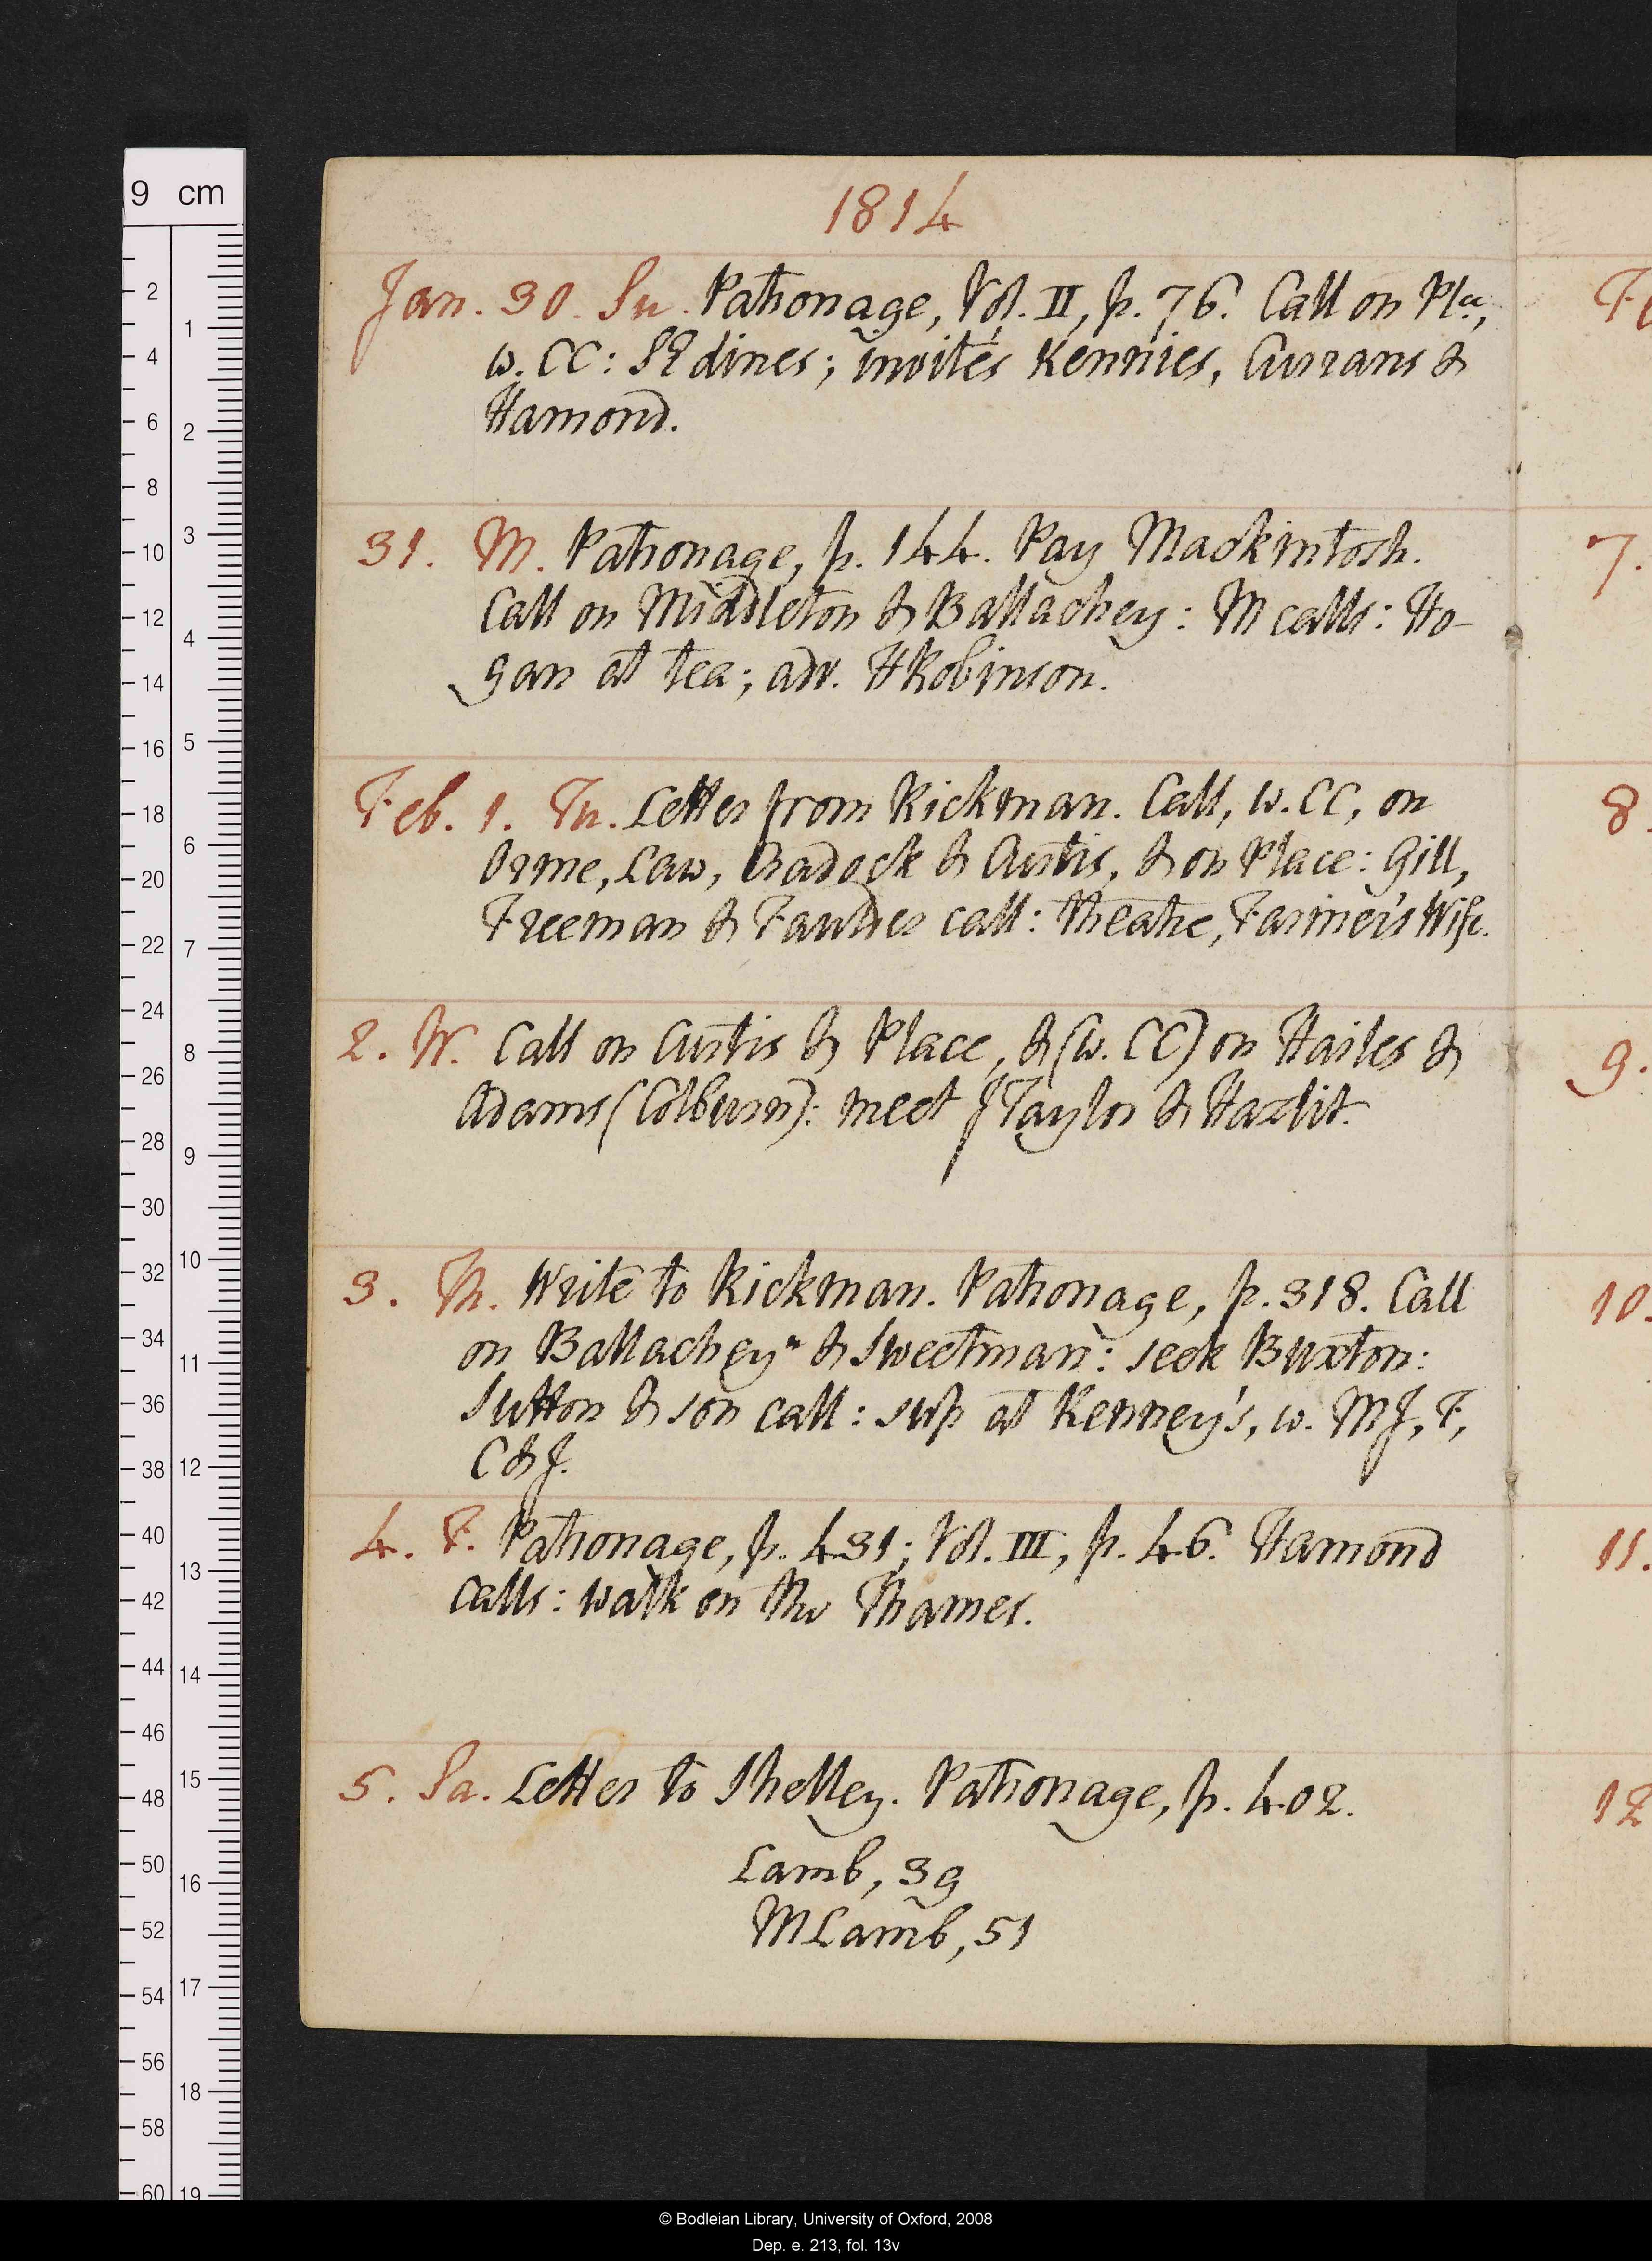 1814
Jan. 30. Su. Patronage, Vol. II, p. 76. Call on Pla.,
w. CC: SE dines; invites Kennies, Currans &
Hamond.
31. M. Patronage, p. 144. Pay Mackintosh.
Call on Middleton & Ballachey: M calls: Ho-
gan at tea; adv. HRobinson.
Feb. 1. Tu. Letter from Rickman. Call, w. CC, on
Orme, Law, Cradock & Curtis, & on Place: Gill,
Freeman & Fawdrer call: theatre, Farmer's Wife.
2. W. Call on Curtis & Place, & (w. CC) on Hailes &
Adams (Colburn): meet JTaylor & Hazlit.
3. Th. Write to Rickman. Patronage, p. 318. Call
on Ballacheyn & Sweetman: seek Buxton:
Sutton & son call: sup at Kenney's, w. MJ, F,
C & J.
4. F. Patronage, p. 431; Vol. III, p. 46. Hamond
calls: walk on the Thames.
5. Sa. Letter to Shelley. Patronage, p. 402.
Lamb, 39
MLamb, 51
7.
8.
9.
10.
11.
12
9 cm
2 4 6 8 10 12 14 16 18 20 22 24 26 28 30 32 34 36 38 40 42 44 46 48 50 52 54 56 58 60
1 2 3 4 5 6 7 8 9 10 11 12 13 14 15 16 17 18 19
© Bodleian Library, University of Oxford, 2008
Dep. e. 213, fol. 13v